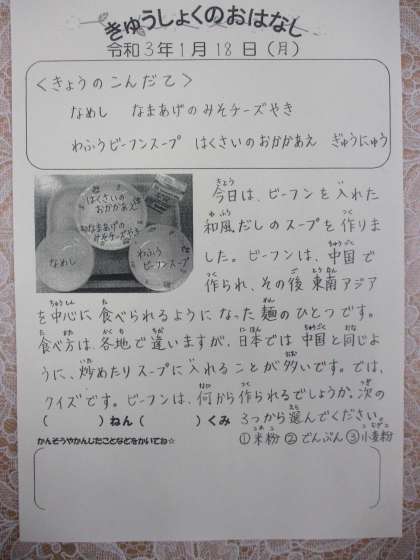 きゅうしょくのおはなし
令和3年1月18日(月)
<きょうのこんだて>
なめし なまあげのみそチーズやき
わふうビーフンスープ はくさいのおかかあえ ぎゅうにゅう
はくさいの
おかかあえ
なまあげの
みそチーズやき
なめし
わふう
ビーフンスープ
きょう い
今日は、ビーフンを入れた
わふう つく
和風だしのスープを作りま
ちゅうごく
した。ビーフンは、中国で
つく ご とうなん
作られ、その後 東南アジア
ちゅうしん た めん
を中心に 食べられるようになった 麺のひとつです。
た かた かくち ちが にほん ちゅうごく おな
食べ方は、各地で違いますが、日本では 中国と同じよ
いた い おお
うに、炒めたりスープに入れることが多いです。では、
なに つく つぎ
クイズです。ビーフンは、何から作られるでしょうか。次の
えら
( )ねん( )くみ 3つから選んでください。
こめこ こむぎこ
①米粉 ②でんぷん ③小麦粉
かんそうやかんじたことなどをかいてね☆